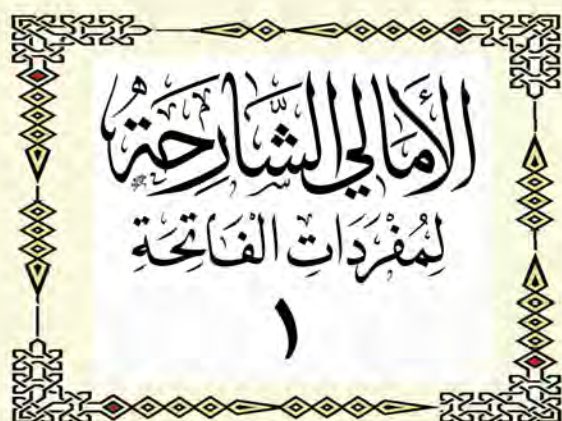 الأَمَالِي الشَّارِحَةُ
لِمُفْرَدَاتِ الْفَاتِحَةِ
١